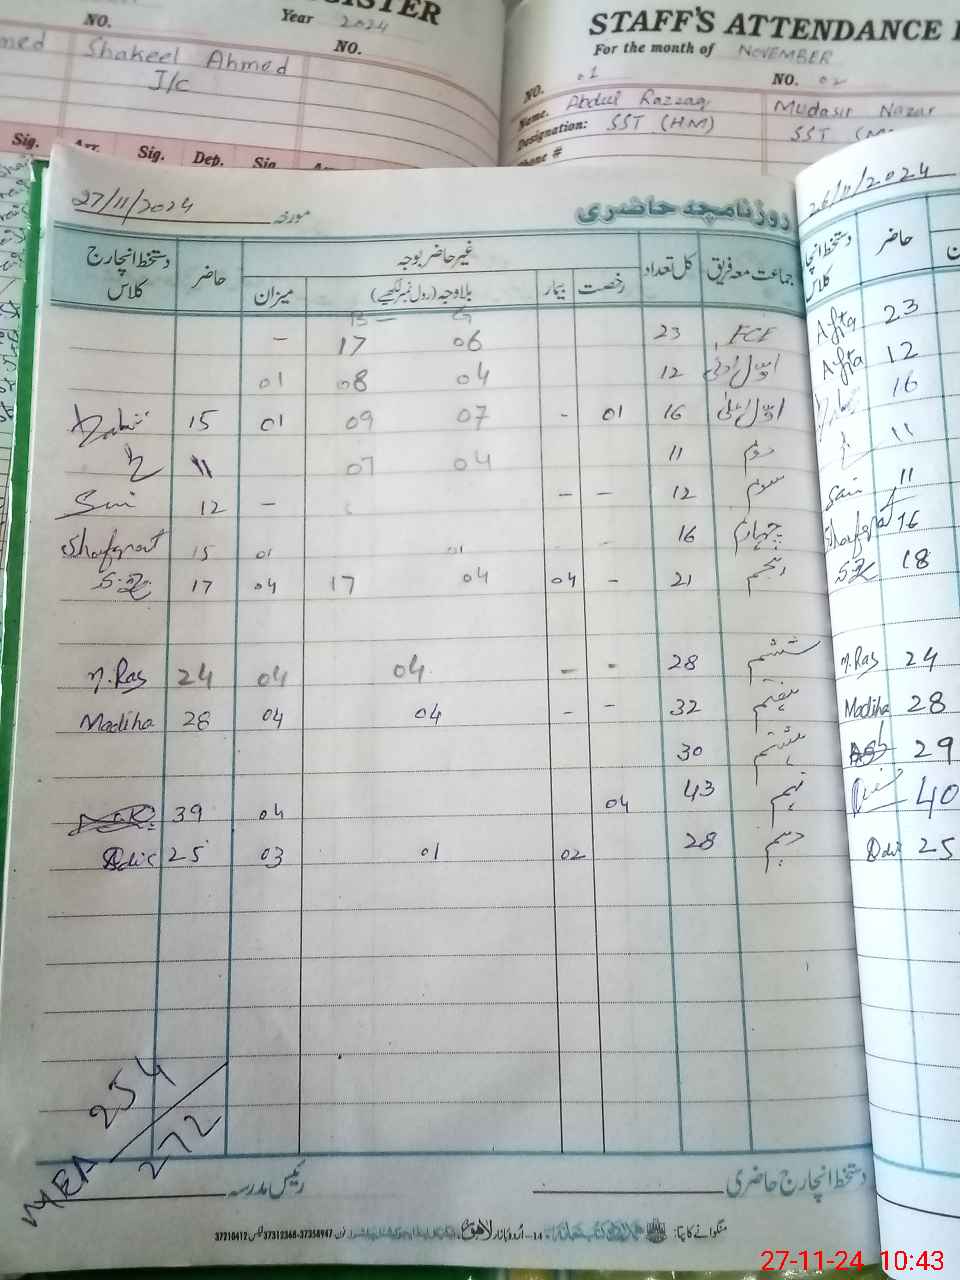 Year 2024
NO. NO.
Shakeel Ahmed
I/c
Sig. Sig. Dep.
STAFF'S ATTENDANCE
For the month of NOVEMBER
NO. 01 NO. 02
Name. Abdul Razzaq Mudasir Nazar
Designation: SST (HM) SST
روزنامچہ حاضری
مورخہ 27/11/2024
جماعت معہ فریق کل تعداد غیر حاضر بوجہ حاضر دستخط انچارج کلاس
رخصت بیمار بلاوجہ (رول نمبر لکھیے) میزان
B — G
ECE 23 06 17 -
اول ادنیٰ 12 04 08 01
اول اعلیٰ 16 01 - 07 09 01 15
دوم 11 04 07 11
سوم 12 - - - 12
چہارم 16 - - 01 01 15 Shafqat
پنجم 21 - 04 04 17 04 17
ششم 28 - - 04 04 24
ہفتم 32 - - 04 04 28 Madiha
ہشتم 30
نہم 43 04 04 39
دہم 28 02 01 03 25
254
272
MEA
دستخط انچارج حاضری رئیس مدرسہ
منگوانے کا پتا: 14-اردو بازار لاہور فون 37312368-37358947 فیکس 37210412
26/11/2024
حاضر
23
12
16
11
11
16
18
24
Madiha 28
29
40
25
27-11-24 10:43